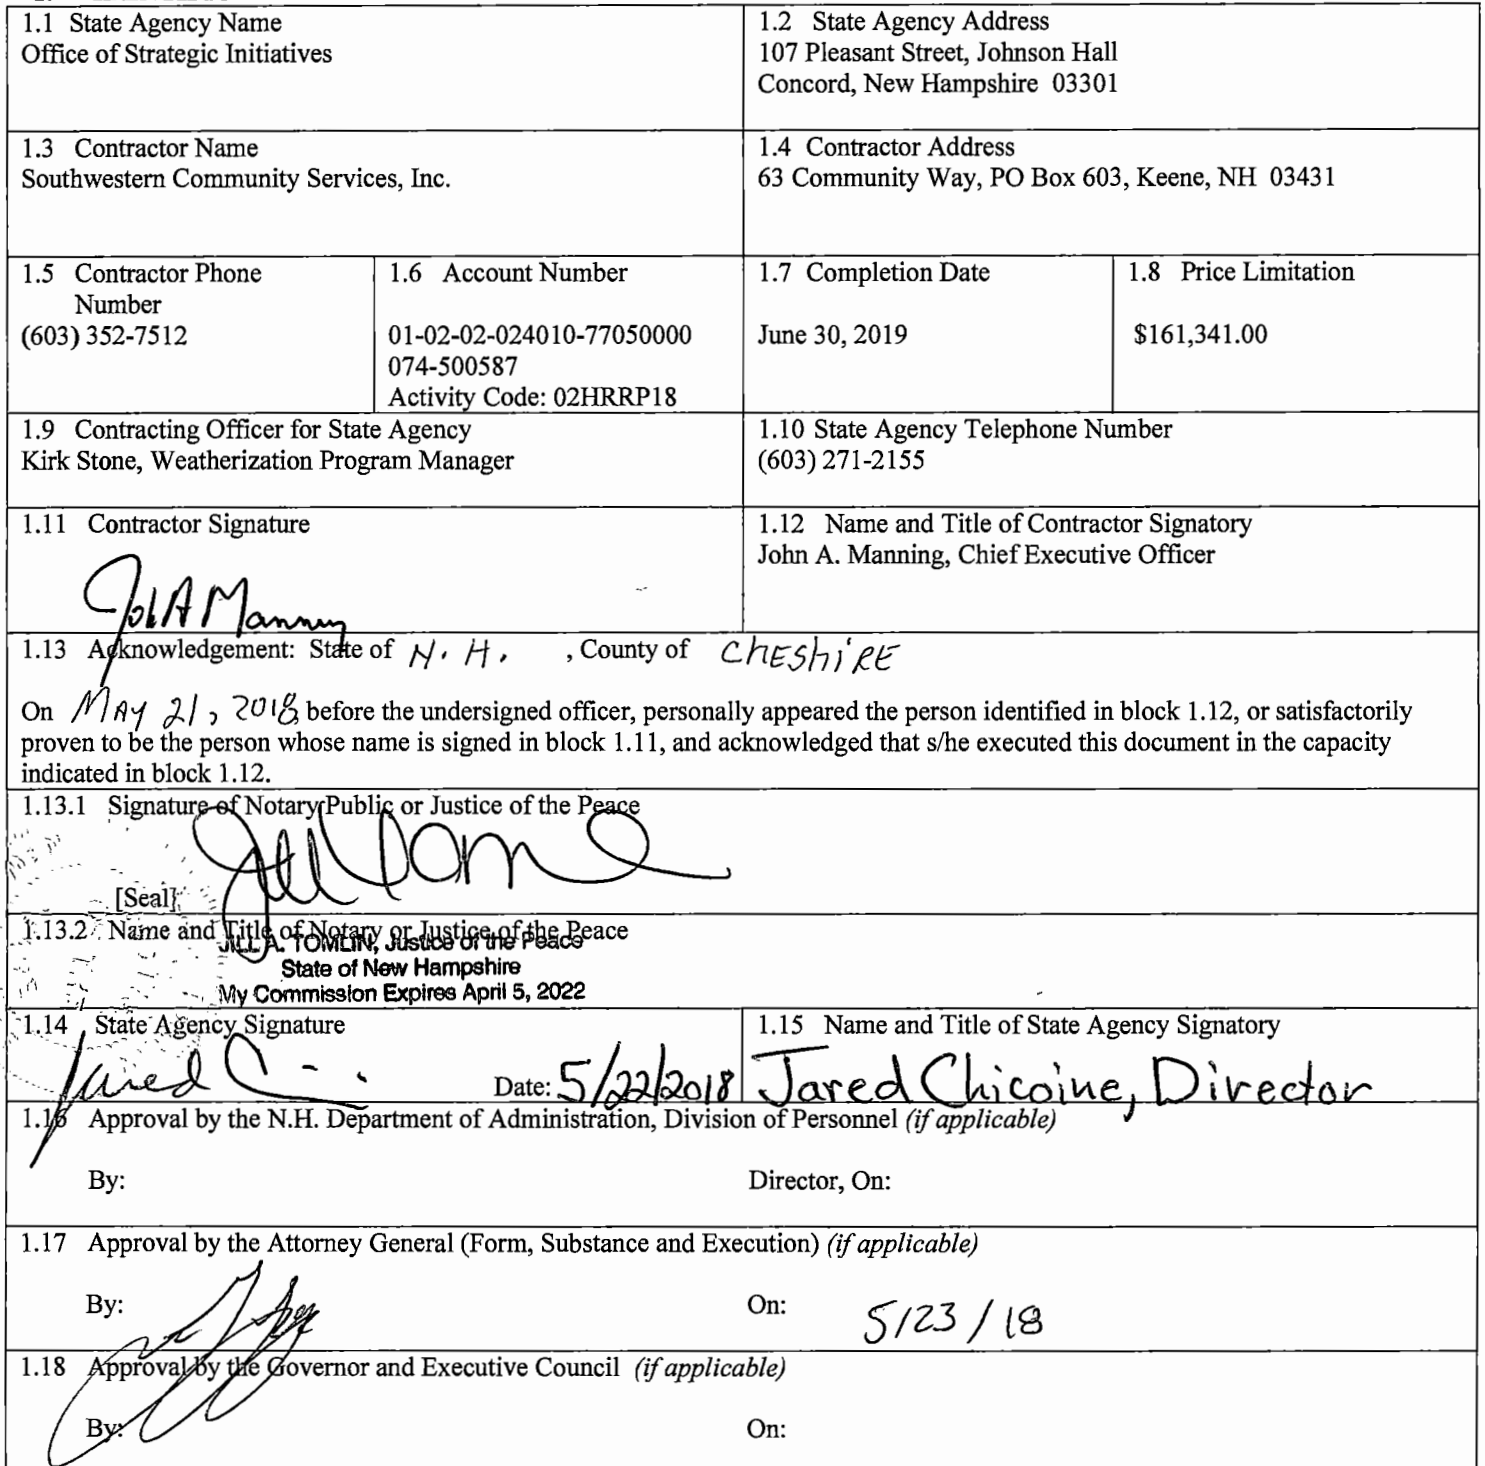 1.1 State Agency Name
Office of Strategic Initiatives
1.2 State Agency Address
107 Pleasant Street, Johnson Hall
Concord, New Hampshire 03301
1.3 Contractor Name
Southwestern Community Services, Inc.
1.4 Contractor Address
63 Community Way, PO Box 603, Keene, NH 03431
1.5 Contractor Phone
Number
(603) 352-7512
1.6 Account Number
01-02-02-024010-77050000
074-500587
Activity Code: 02HRRP18
1.7 Completion Date
June 30, 2019
1.8 Price Limitation
$161,341.00
1.9 Contracting Officer for State Agency
Kirk Stone, Weatherization Program Manager
1.10 State Agency Telephone Number
(603) 271-2155
1.11 Contractor Signature
John A Manning
1.12 Name and Title of Contractor Signatory
John A. Manning, Chief Executive Officer
1.13 Acknowledgement: State of N. H. , County of CHESHIRE
On MAY 21, 2018, before the undersigned officer, personally appeared the person identified in block 1.12, or satisfactorily
proven to be the person whose name is signed in block 1.11, and acknowledged that s/he executed this document in the capacity
indicated in block 1.12.
1.13.1 Signature of Notary Public or Justice of the Peace
[Seal]
1.13.2 Name and Title of Notary or Justice of the Peace
JILL A. TOMLIN, Justice of the Peace
State of New Hampshire
My Commission Expires April 5, 2022
1.14 State Agency Signature
Jared C
Date: 5/22/2018
1.15 Name and Title of State Agency Signatory
Jared Chicoine, Director
1.16 Approval by the N.H. Department of Administration, Division of Personnel (if applicable)
By:
Director, On:
1.17 Approval by the Attorney General (Form, Substance and Execution) (if applicable)
By:
On: 5/23/18
1.18 Approval by the Governor and Executive Council (if applicable)
By:
On: